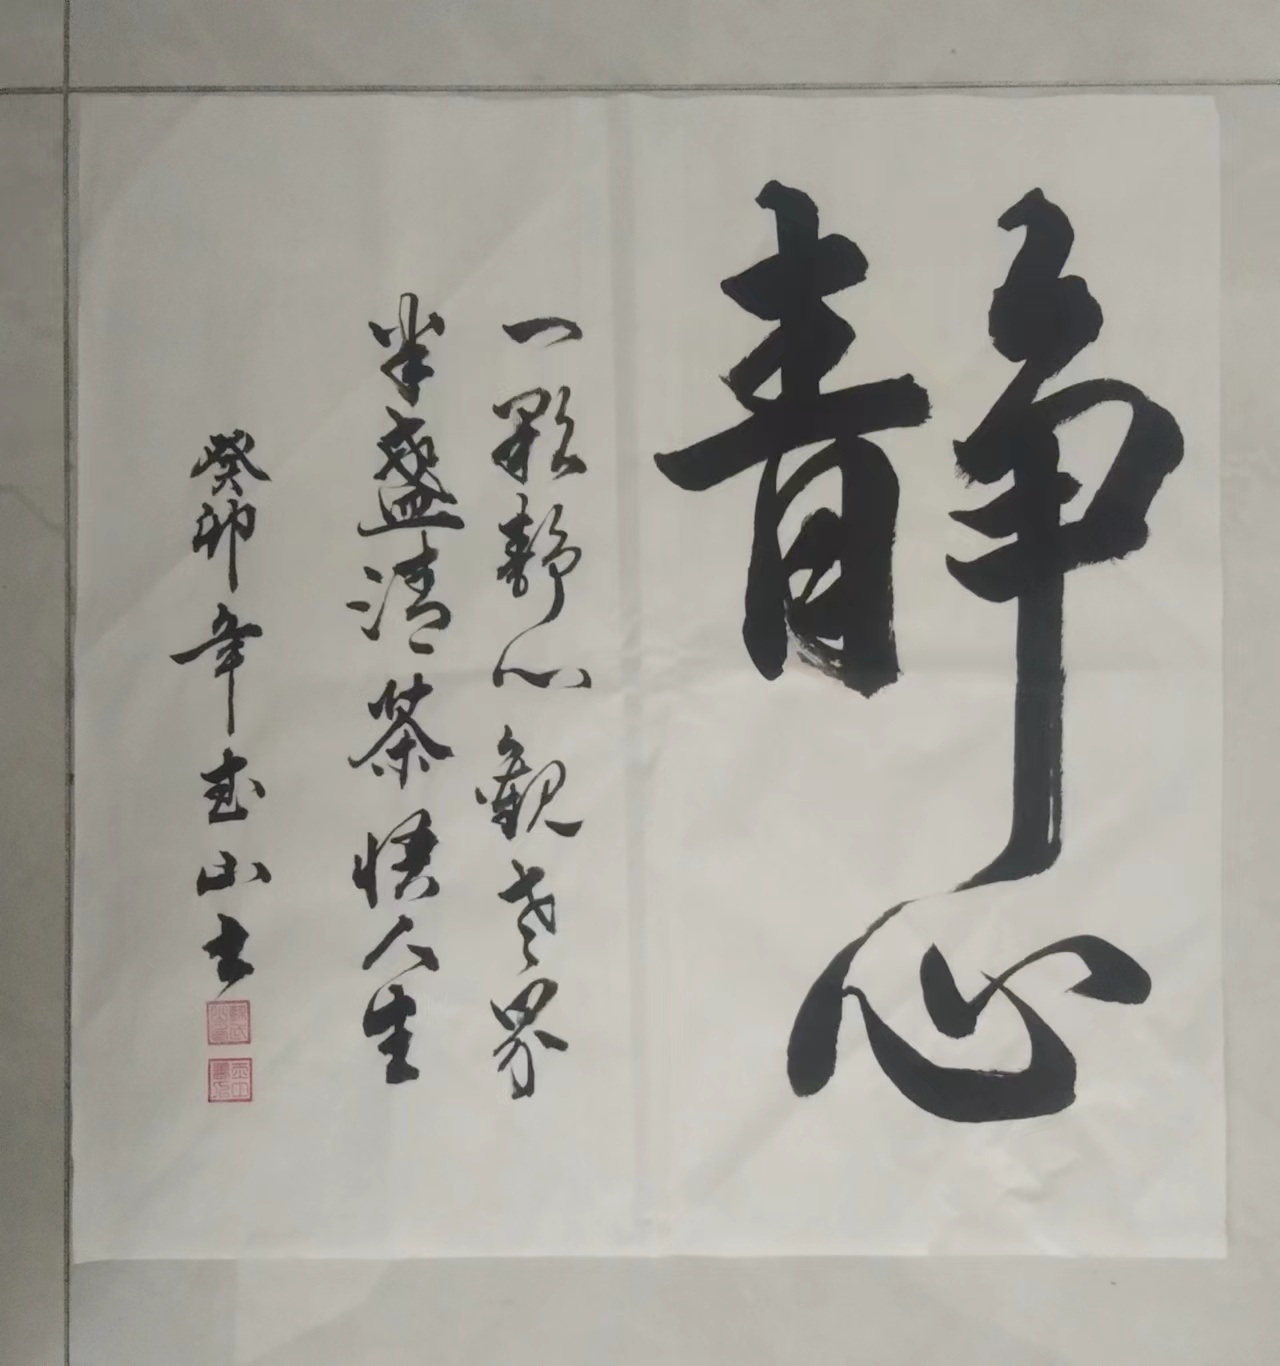 静心
一颗静心觀世界
半盏清茶悟人生
癸卯年武山书